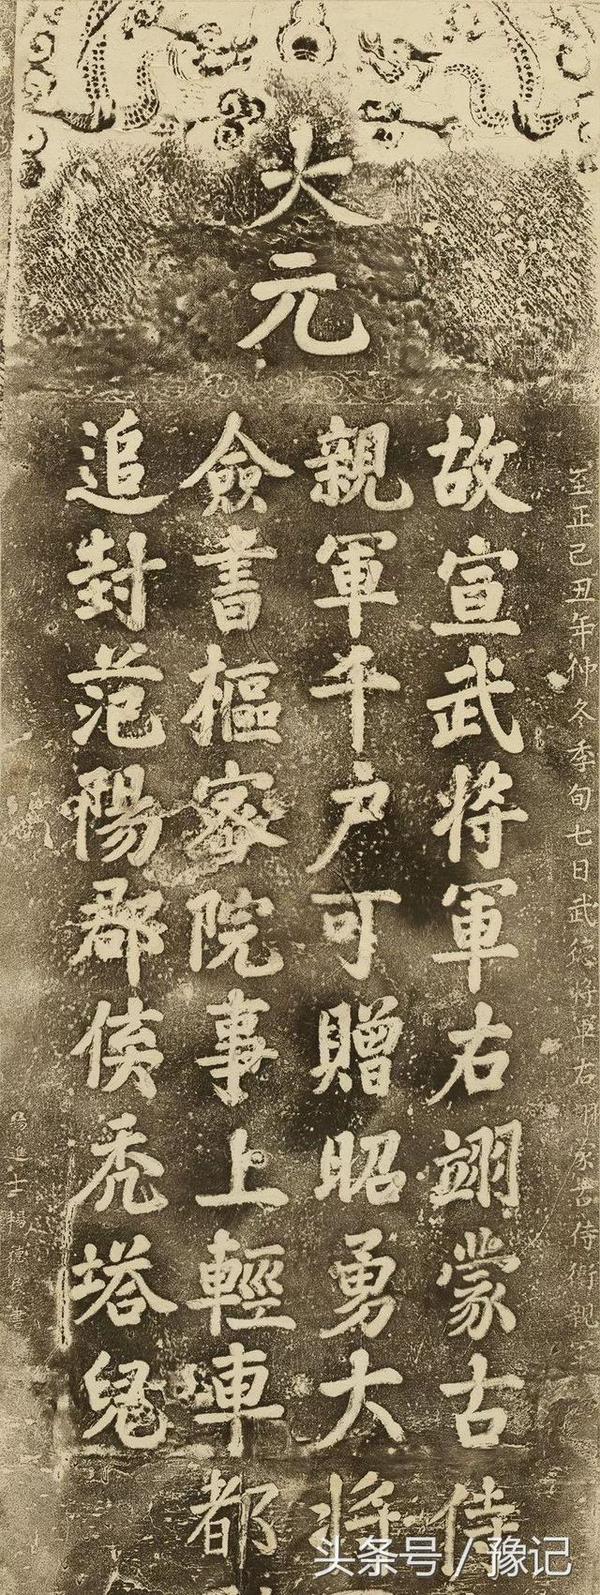 大元
至正己丑年仲冬季旬七日武德將軍右翊蒙古侍衛親軍
故宣武將軍右翊蒙古侍
親軍千户可贈昭勇大將
僉書樞密院事上輕車都
追封范陽郡侯禿塔兒
進士楊德
頭条号 / 豫记